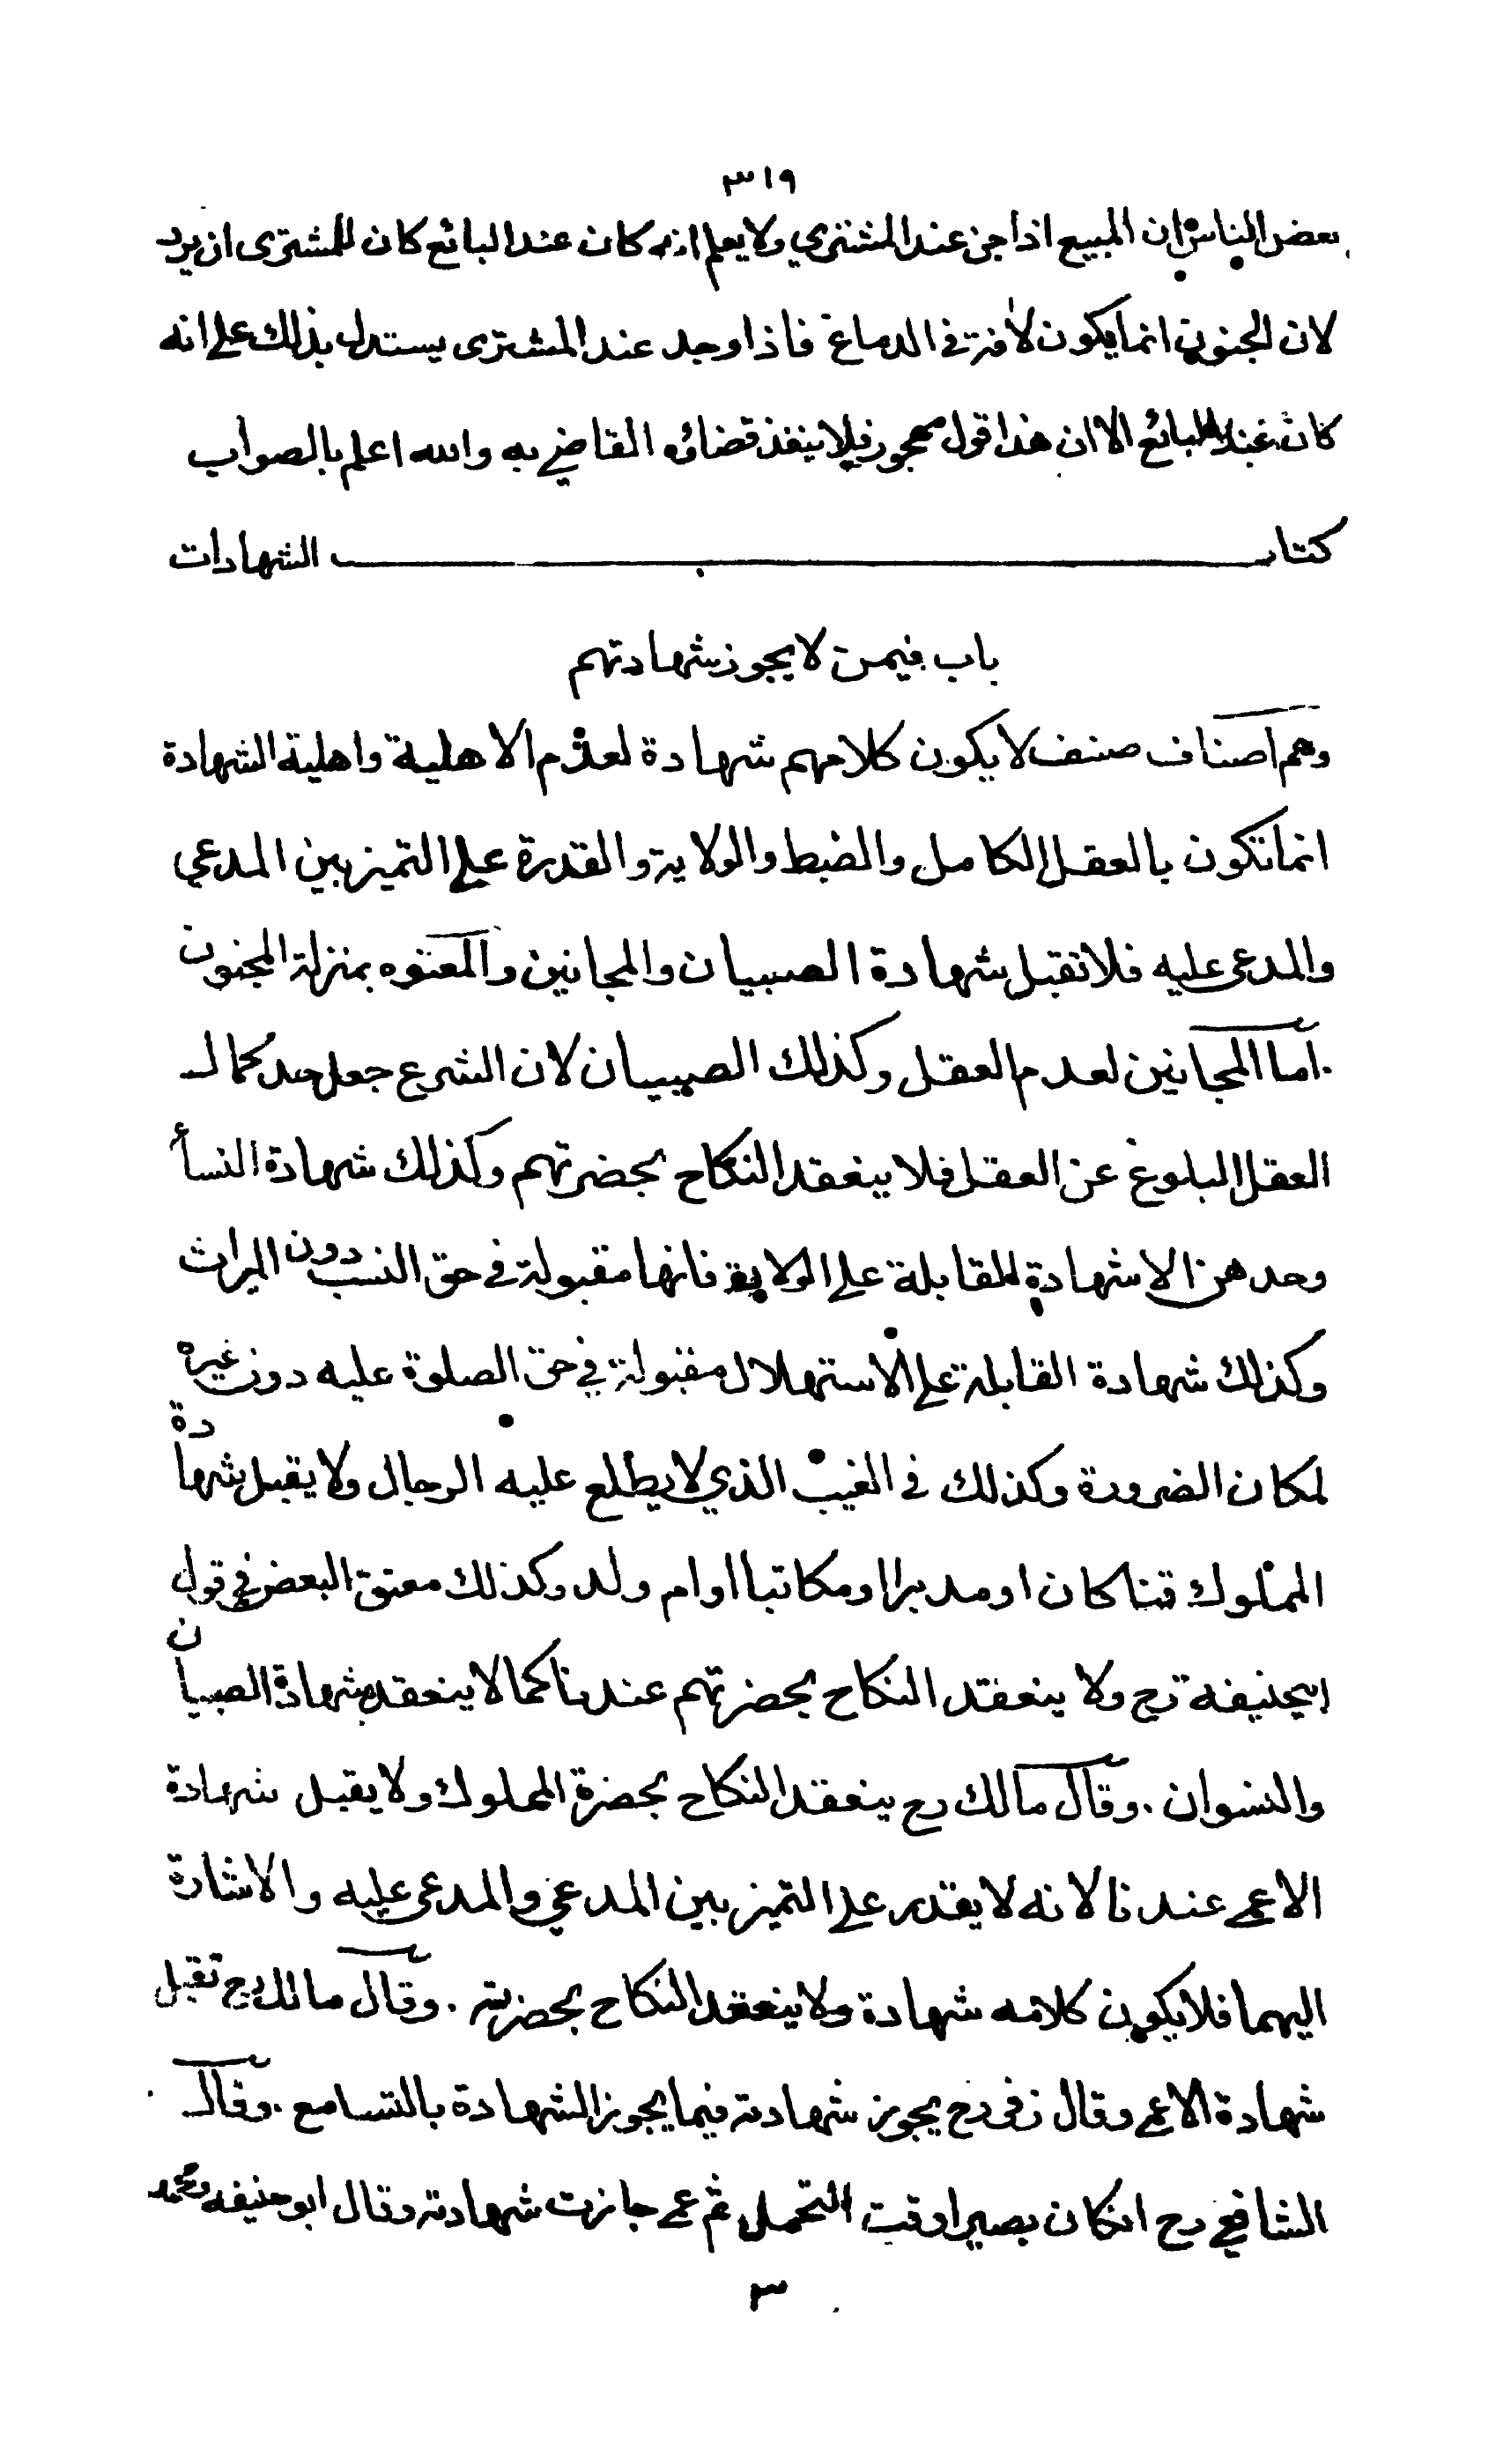 ٣١٩
بعض الناس ان المبيع اذا جن عند المشتري ولا يعلم انه كان عند البائع كان للمشترى ان يرد
لان الجنون انما يكون لآفة في الدماغ فاذا وجد عند المشترى يستدل بذلك على انه
كان عند البائع الا ان هذا قول مهجور فلا ينفذ قضاؤه القاضي به والله اعلم بالصواب
كتاب الشهادات
باب فيمن لا يجوز شهادتهم
وهم اصناف صنف لا يكون كلامهم شهادة لعدم الاهلية واهلية الشهادة
انما تكون بالعقل الكامل والضبط والولاية والقدرة على التميز بين المدعي
والمدعى عليه فلا تقبل شهادة الصبيان والمجانين والمعتوه بمنزلة المجنون
اما المجانين لعدم العقل وكذلك الصبيان لان الشرع جعل حد كمال
العقل البلوغ عن العقل فلا ينعقد النكاح بحضرتهم وكذلك شهادة النسأ
وحدهن الا شهادة للقابلة على الولاية فانها مقبولة في حق النسب دون الميراث
وكذلك شهادة القابلة على الاستهلال مقبولة في حق الصلوة عليه دون غيره
لمكان الضرورة وكذلك في العيب الذي لا يطلع عليه الرجال ولا يقبل شهادة
المملوك قنا كان او مدبرا او مكاتبا او ام ولد وكذلك معتق البعض في قول
ابيحنيفه رح ولا ينعقد النكاح بحضرتهم عندنا كما لا ينعقد بشهادة الصبيان
والنسوان . وقال مالك رح ينعقد النكاح بحضرة المملوك ولا يقبل شهادة
الاعمى عندنا لانه لا يقدر على التميز بين المدعي والمدعى عليه والاشارة
اليهما فلا يكون كلامه شهادة ولا ينعقد النكاح بحضرته . وقال مالك رح تقبل
شهادة الاعمى وقال زفر رح يجوز شهادته فيما يجوز الشهادة بالتسامع . وقال
الشافعي رح انكان بصيرا وقت التحمل ثم عمى جازت شهادته وقال ابو حنيفه ومحمد
٣